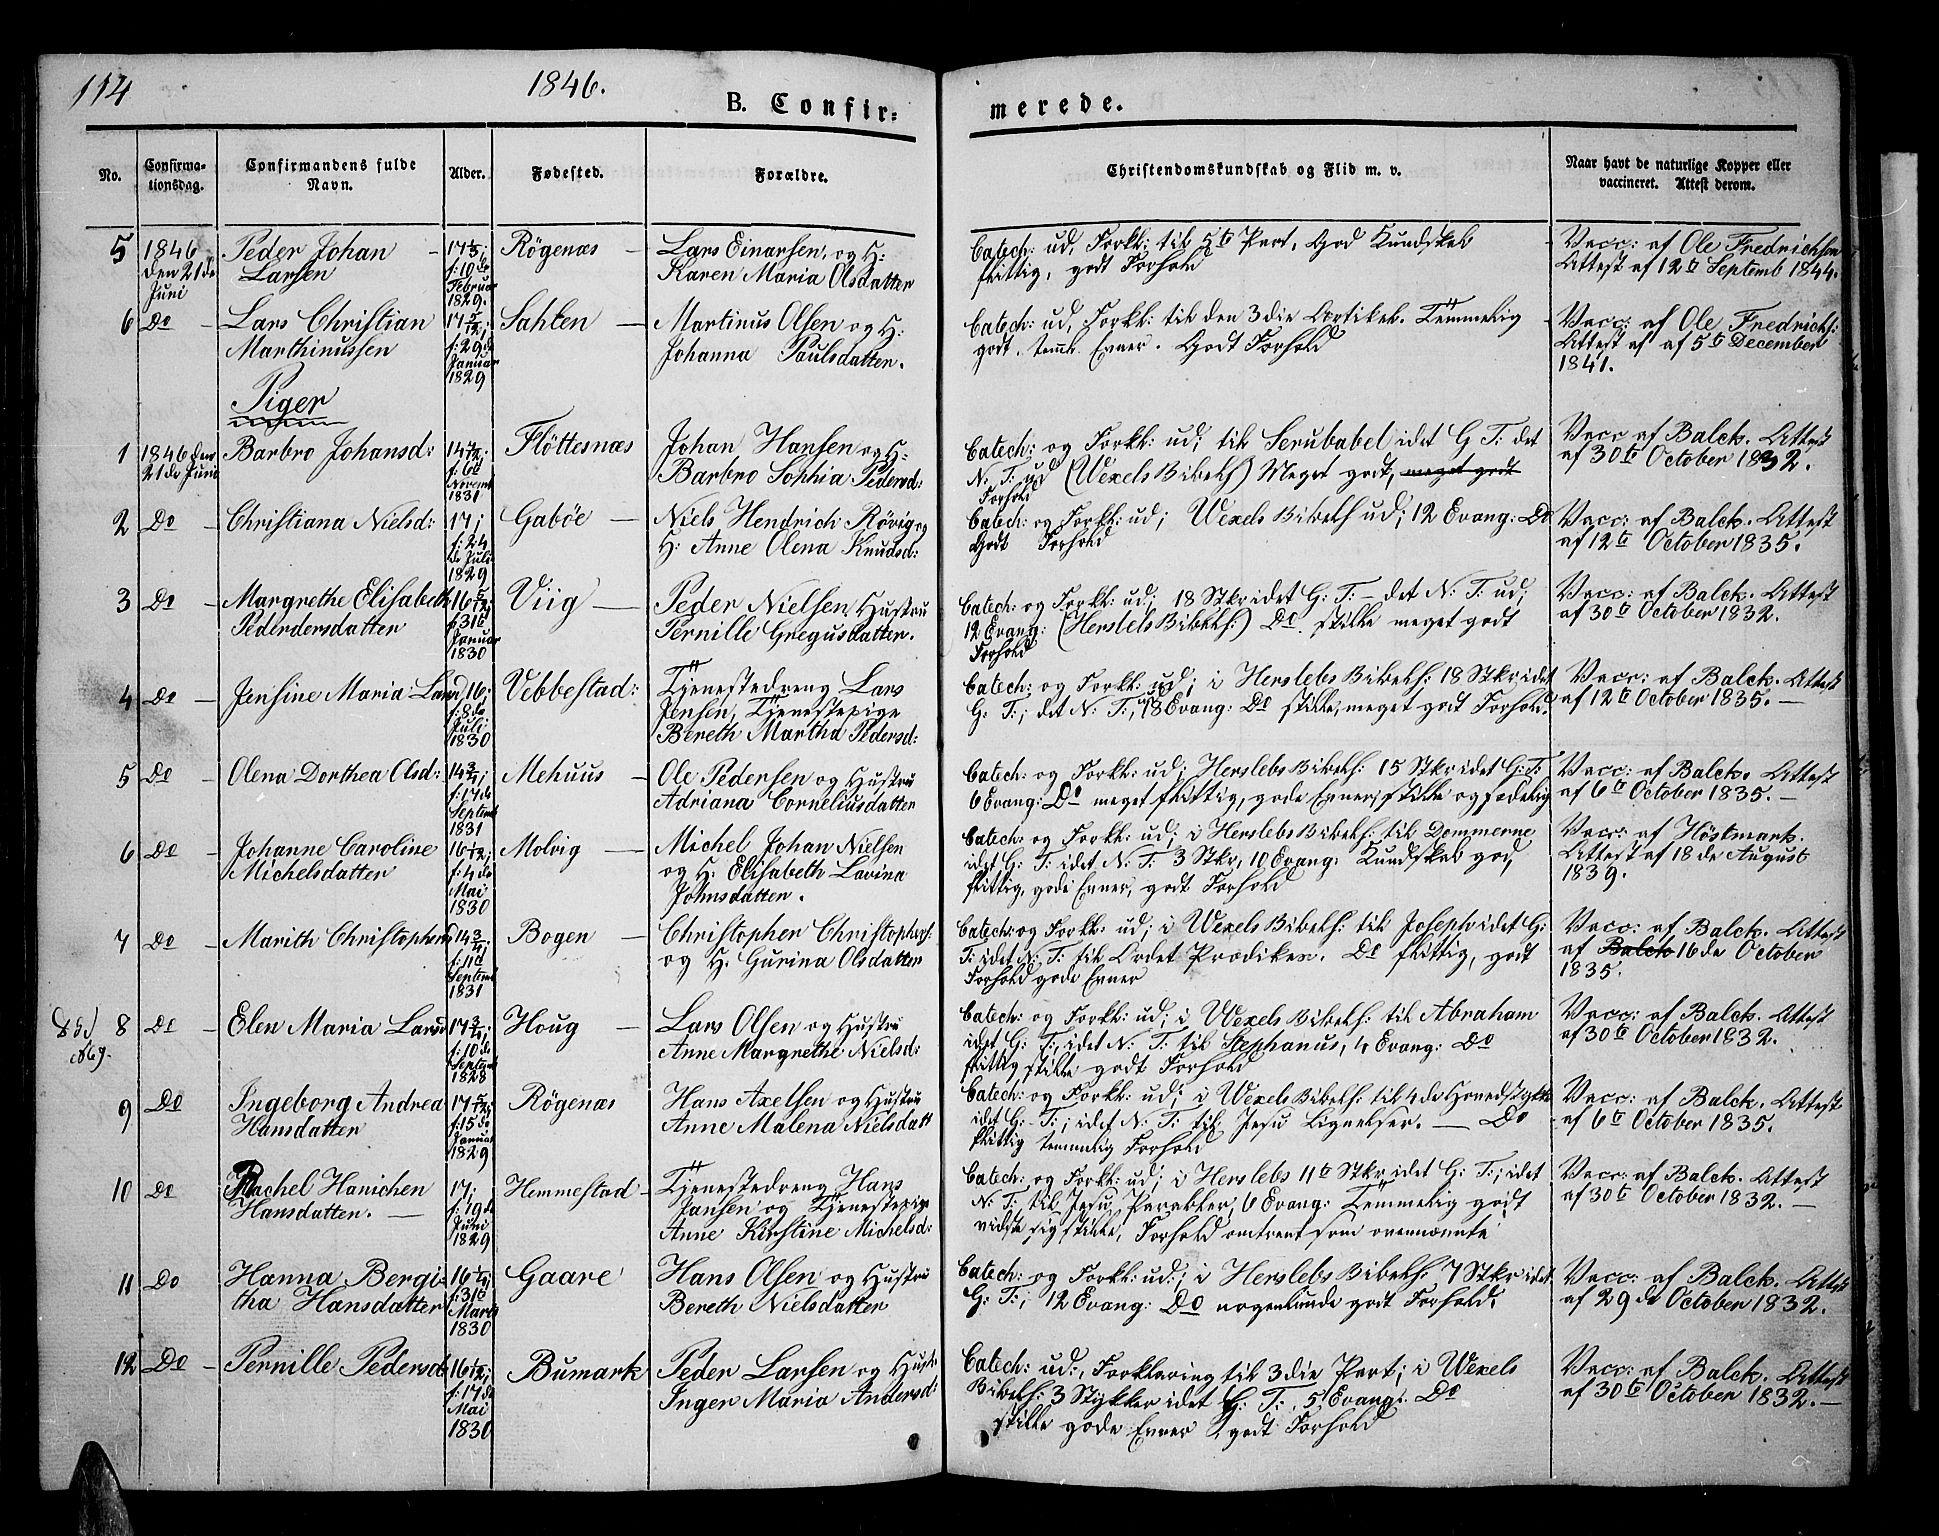 114
1846.
B. Confir=
merede.
No.
Confirma-
tionsdag.
Confirmandens fulde
Navn.
Alder.
Fødested.
Forældre.
Christendomskundskab og Flid m. v.
Naar havt de naturlige Kopper eller
vaccineret. Attest derom.
5 1846 Peder Johan - 17 Røgenæs - Lars Einarsen, og H:
den 21de Larsen f: 10de Karen Maria Olsdatter
Juni Februar
1829.
Catech: ud, Forkl: til 5te Part, God Kundskab
flittig, godt Forhold
Vacc: af Ole Fredrichsen
Attest af 12te Septemb 1844.
6 Do - Lars Christian 17 5/12; Sahten - Martinus Olsen og H:
Marthinussen f: 29de Johanna Paulsdatter.
Januar
1829
Catech: ud, Forkl: til den 3die Artikel. Temmelig
godt. teml. Evner. Godt Forhold
Vacc: af Ole Fredrichs:
Attest af af 5te December
1841.
Piger
1 1846 den Barbro Johansd: 14 7/12; Fløttesnæs Johan Hansen og H:
21de Juni f: 6te Barbro Sophia Pedersd:
Novemb
1831
Catech: og Forkl: ud; til Serubabel i det G T: det
N: T: ud (Wexels Bibelh) Meget godt, meget godt
Forhold
Vacc af Balck. Attest
af 30te October 1832.
2 Do - Christiana Nielsd: 17; Gabøe - Niels Hendrich Røvig og
f: 24 H: Anne Olena Knudsd:
de Juli
1829
Catech: og Forkl: ud; Wexels Bibelh ud; 12 Evang: Do
Godt Forhold
Vacc: af Balck. Attest
af 12te October 1835.
3 Do - Margrethe Elisabeth 16 5/12; Viig - Peder Nielsen, Hustru
Pederdersdatter f: 31te Pernille Gregusdatter.
Januar
1830
Catech: og Forkl: ud; 18 Stkr i det G: T: - det N: T: ud;
12 Evang: (Herslebs Bibelh:) Do. stille meget godt
Forhold
Vacc: af Balck. Attest
af 30te October 1832.
4 Do - Jensine Maria Larsd 16; Vebbestad: Tjenestedreng Lars
f: 8de Jensen, Tjenestepige
Juli Bereth Martha Pedersd:
1830
Catech: og Forkl: ud; i Herslebs Bibelh: 18 Stkr i det
G: T:; det N: T:, ud 8 Evang: Do stille, meget godt Forhold.
Vacc: af Balck. Attest
af 12te October 1835. -
5 Do - Olena Dorthea Olsd: 14 3/4; Mehuus - Ole Pedersen og Hustru
f: 17de Adriana Corneliusdatter
Septemb
1831
Catech: og Forkl: ud; Herslebs Bibelh: 15 Stkr i det G: T:
6 Evang: Do meget flittig, gode Evner, stille og sædelig
Vacc: af Balck. Attest
af 6te October 1835. -
6 Do - Johanne Caroline 16 1/12; Molvig - Michel Johan Nielsen
Michelsdatter f: 4de og H: Elisabeth Lavina
Mai Johnsdatter.
1830
Catech: og Forkl: ud; i Herslebs Bibelh: til Dommerne
i det G: T: i det N: T: 3 Stkr, 10 Evang: Kundskab god,
flittig, gode Evner, godt Forhold
Vacc: af Høstmark.
Attest af 18de August
1839.
7 Do - Marith Christophersd 14 3/4; Bogen - Christopher Christophers:
f: 11te og H: Gurina Olsdatter
Septemb
1831
Catech: og Forkl: ud; i Wexels Bibelh: til Joseph i det G:
T: i det N: T: til Ordet Prædiken. Do flittig, godt
Forhold gode Evner
Vacc: af Balck. Attest
af Balck 16de October
1835.
8 Do - Elen Maria Larsd 17 3/4; Houg - Lars Olsen og Hustru
1869. f: 10de Anne Margrethe Nielsd:
Septemb
1828
Catech: og Forkl: ud; i Wexels Bibelh: til Abraham
i det G: T:, i det N: T: til Stephanus, 4 Evang: Do
flittig stille godt Forhold
Vacc: af Balck. Attest
af 30te October 1832.
9 Do Ingeborg Andrea 17 5/12; Røgenæs Hans Axelsen og Hustru
Hansdatter f: 15de Anne Malena Nielsdatt
Januar
1829
Catech: og Forkl: ud; i Wexels Bibelh: til 4de Hovedstykke
i det G: T:; i det N: T: til Jesu Lignelser. - Do
flittig temmelig Forhold
Vacc: af Balck. Attest
af 6te October 1835.
10 Do Rachel Hanichen 17; Hemmestad - Tjenestedreng Hans
Hansdatter. - f: 19de Jansen og Tjenestepige
Juni Anne Kirstine Michelsd:
1829
Catech: og Forkl: ud; i Herslebs 11te Stkr i det G: T:; i det
N: T: til Jesu Parabler, 6 Evang: Temmelig godt
vidste sig stille, Forhold omtrent som ovennævnte
Vacc: af Balck. Attest
af 30te October 1832. -
11 Do Hanna Bergi- 16 1/4; Gaare Hans Olsen og Hustru
tha Hansdatter f: 31te Bereth Nielsdatter
Marts
1830
Catech: og Forkl: ud:; i Herslebs Bibelh: 7 Stkr i det
G: T:; 12 Evang: Do nogenlunde godt Forhold.
Vacc: af Balck. Attest
af 29de October 1832.
12 Do - Pernille Pedersd 16 1/12; Bumark Peder Larsen og Hustr
f: 17de Inger Maria Andersd:
Mai
1830
Catech: ud:, Forklaring til 3die Part; i Wexels
Bibelh: 3 Stykker i det G: T:, 5 Evang: Do
stille gode Evner, godt Forhold
Vacc: af Balck. Attest
af 30te October 1832. -